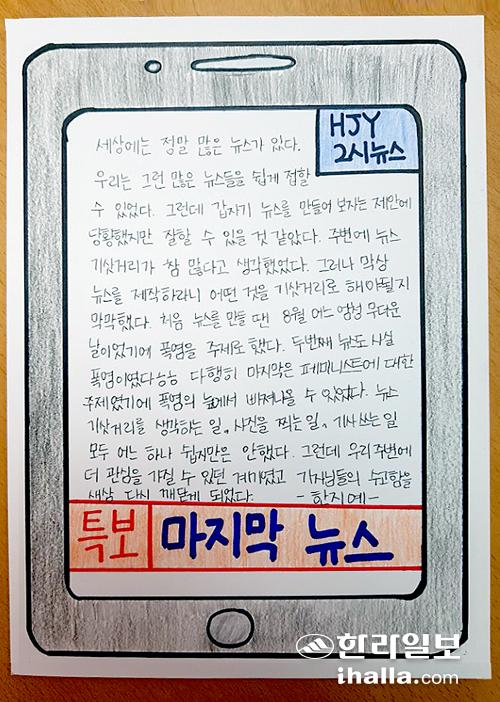 HJY
2시뉴스
세상에는 정말 많은 뉴스가 있다.
우리는 그런 많은 뉴스들을 쉽게 접할
수 있었다. 그런데 갑자기 뉴스를 만들어 보자는 제안에
당황했지만 잘할 수 있을 것 같았다. 주변에 뉴스
기삿거리가 참 많다고 생각했었다. 그러나 막상
뉴스를 제작하라니 어떤 것을 기삿거리로 해야될지
막막했다. 처음 뉴스를 만들 땐 8월 어느 엄청 무더운
날이었기에 폭염을 주제로 했다. 두번째 뉴스도 사실
폭염이였다ㅎㅎ 다행히 마지막은 페미니스트에 대한
주제였기에 폭염의 늪에서 빠져나올 수 있었다. 뉴스
기삿거리를 생각하는 일, 사진을 찍는 일, 기사쓰는 일
모두 어느 하나 쉽지만은 안했다. 그런데 우리주변에
더 관심을 가질 수 있던 계기였고 기자님들의 수고함을
새삼 다시 깨닫게 되었다. -한지예-
특보 마지막 뉴스
한라일보
ihalla.com